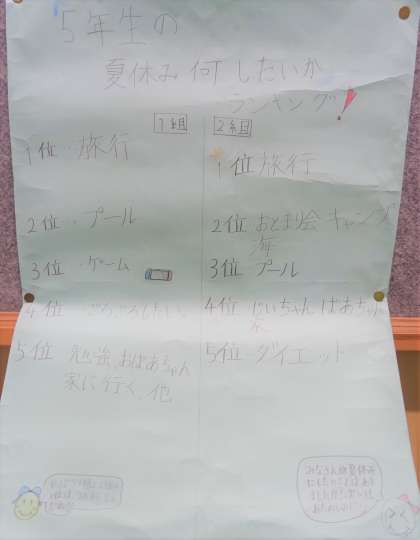 5年生の
夏休み何したいか
ランキング!
1組
1位・旅行
2位・プール
3位・ゲーム
4位・ごろごろしたい。
5位 勉強、おばあちゃん
家に行く、他
2組
1位 旅行
2位 おとまり会 キャンプ
海
3位 プール
4位 じいちゃん ばあちゃん
家
5位 ダイエット
みなさんは夏休み